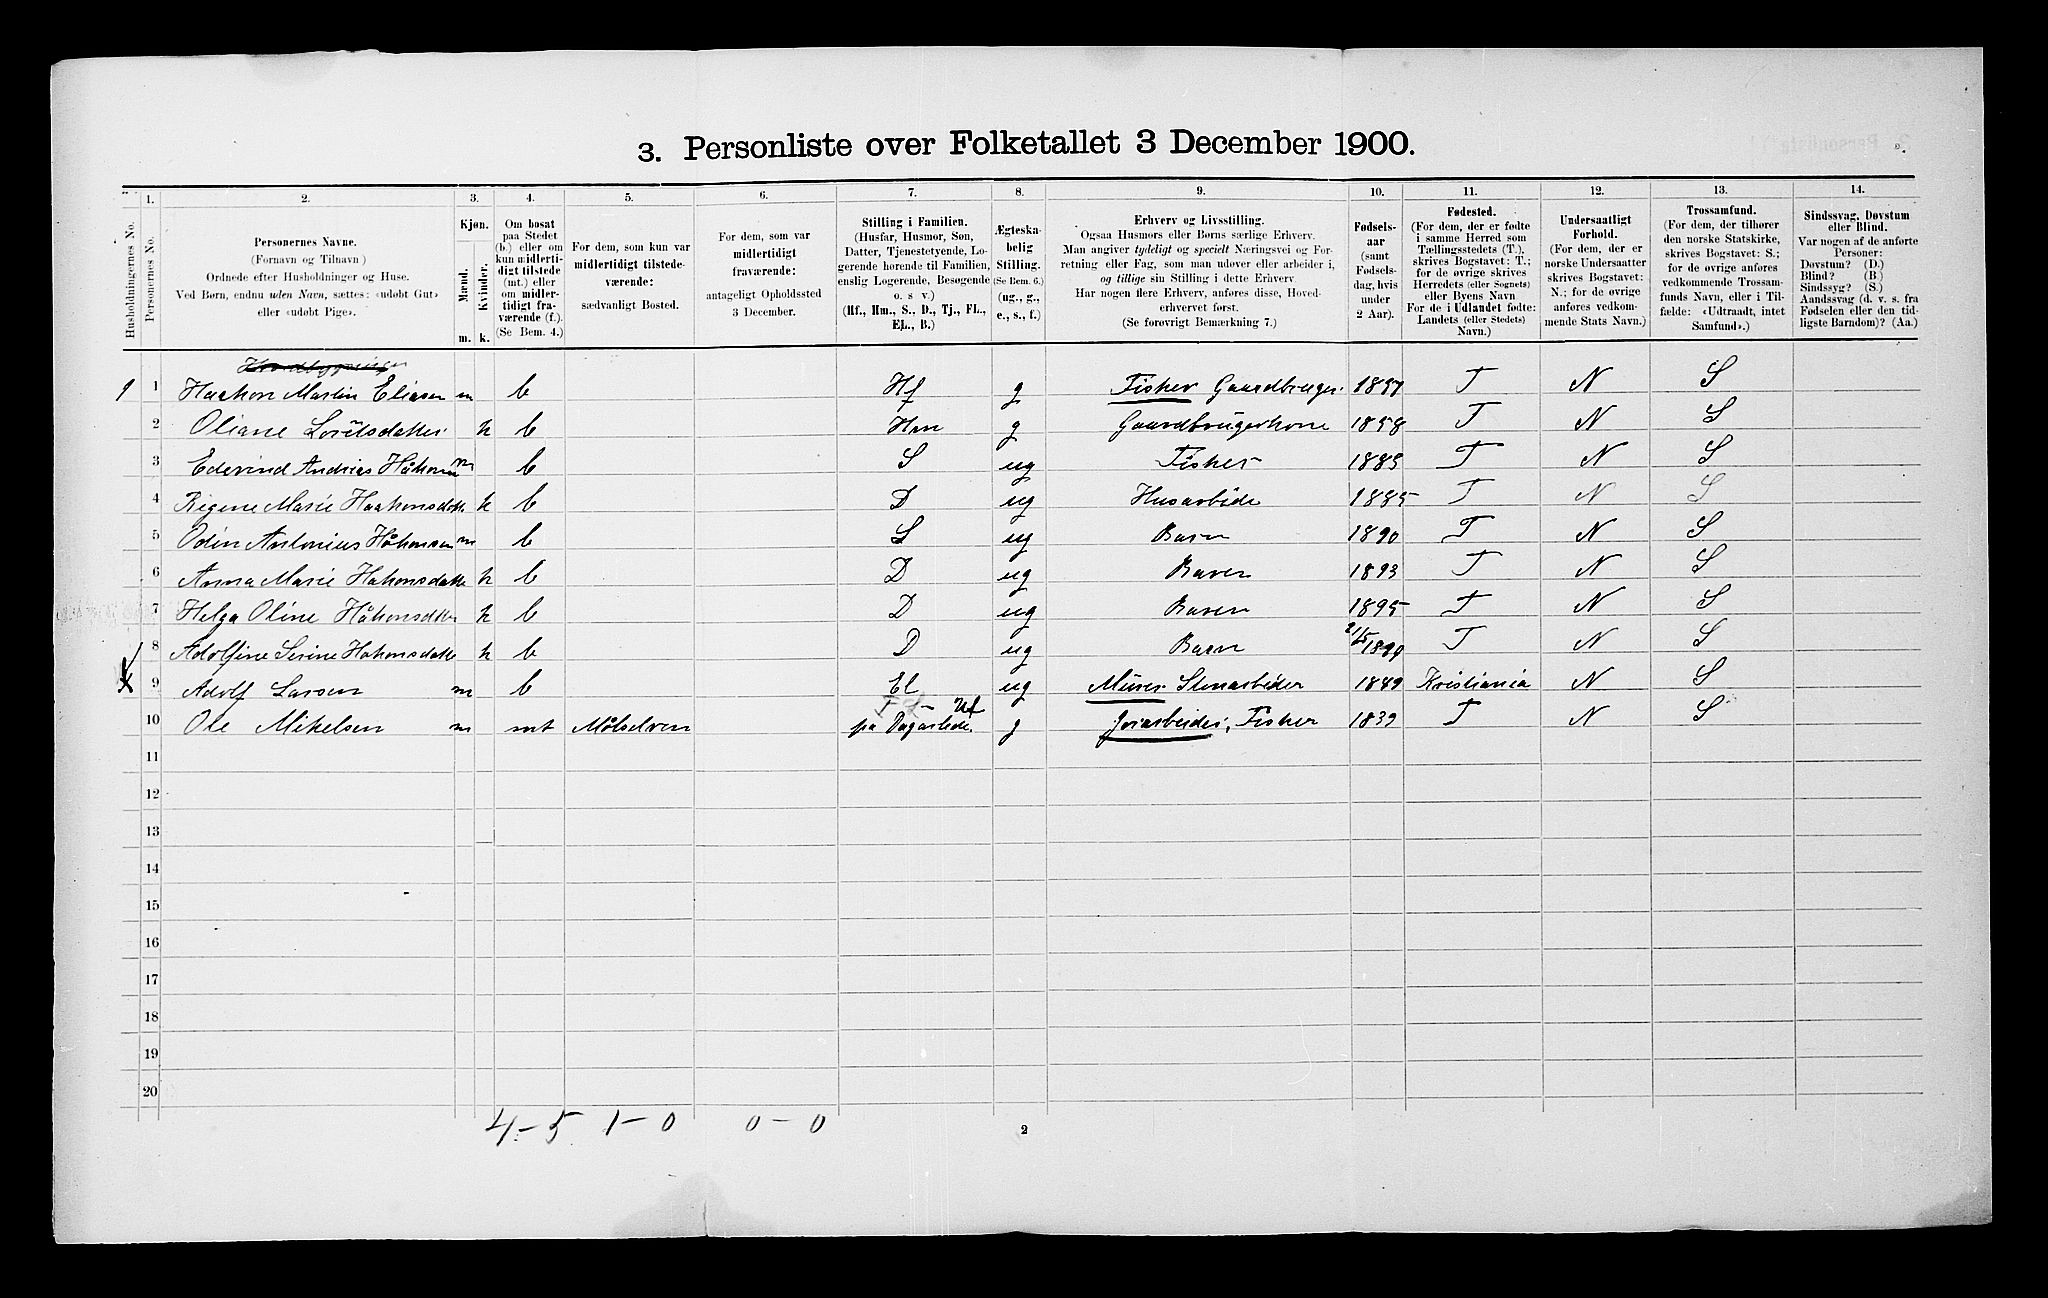 3. Personliste over Folketallet 3 December 1900.
Husholdningernes No.
1. Personernes No.
2. Personernes Navne.
(Fornavn og Tilnavn)
Ordnede efter Husholdninger og Huse.
Ved Børn, endnu uden Navn, sættes: «udøbt Gut»
eller «udøbt Pige».
3. Kjøn.
Mænd. Kvinder.
m. k.
4. Om bosat
paa Stedet
(b.) eller om
kun midlerti-
digt tilstede
(mt.) eller
om midler-
tidigt fra-
værende (f.)
(Se Bem. 4.)
5. For dem, som kun var
midlertidigt tilstede-
værende:
sædvanligt Bosted.
6. For dem, som var
midlertidigt
fraværende:
antageligt Opholdssted
3 December.
7. Stilling i Familien.
(Husfar, Husmor, Søn,
Datter, Tjenestetyende, Lo-
gerende hørende til Familien,
enslig Logerende, Besøgende
o. s v.)
(Hf., Hm., S., D., Tj., FL.,
EL., B.)
8. Ægteska-
belig
Stilling.
(Se Bem. 6.)
(ug., g.,
e., s., f.)
9. Erhverv og Livsstilling.
Ogsaa Husmors eller Børns særlige Erhverv.
Man angiver tydeligt og specielt Næringsvei og For-
retning eller Fag, som man udøver eller arbeider i,
og tillige sin Stilling i dette Erhverv.
Har nogen flere Erhverv, anføres disse, Hoved-
erhvervet først.
(Se forøvrigt Bemærkning 7.)
10. Fødsels-
aar
(samt
Fødsels-
dag, hvis
under
2 Aar).
11. Fødested.
(For dem, der er fødte
i samme Herred som
Tællingsstedets (T.),
skrives Bogstavet: T.;
for de øvrige skrives
Herredets (eller Sognets)
eller Byens Navn
For de i Udlandet fødte:
Landets (eller Stedets)
Navn.)
12. Undersaatligt
Forhold.
(For dem, der er
norske Undersaatter
skrives Bogstavet:
N.; for de øvrige
anføres vedkom-
mende Stats Navn.)
13. Trossamfund.
(For dem, der tilhører
den norske Statskirke,
skrives Bogstavet: S.;
for de øvrige anføres
vedkommende Trossam-
funds Navn, eller i Til-
fælde: «Udtraadt, intet
Samfund».)
14. Sindssvag, Døvstum
eller Blind.
Var nogen af de anførte
Personer:
Døvstum? (D.)
Blind? (B.)
Sindssyg? (S.)
Aandssvag (d. v. s. fra
Fødselen eller den tid-
ligste Barndom)? (Aa.)
1 Haakon Martin Eliasen m b Hf g Fisker Gaardbruger T N S
2 Oliane Loritsdatter k b Hm g Gaardbrugerkone 1858 T N S
3 Edevind Andreas Håkonsen m b S ug Fisker 1883 T N S
4 Regine Marie Haakonsdatter k b D ug Husarbeide 1885 T N S
5 Odin Antonius Håkonsen m b S ug Barn 1890 T N S
6 Anna Marie Hakonsdatte k b D ug Barn 1893 T N S
7 Helga Oline Håkonsdtter k b D ug Barn 1895 T N S
8 Adolfine Serine Hakonsdatte k b D ug Barn 21/5 1899 T N S
9 Adolf Larsen m b El ug Murer Stenarbeider Kristiania N S
10 Ole Mikelsen m mt Målselven Hf på Dagarbede. g Jorarbeider, Fisker 1839 T N S
11
12
13
14
15
16
17
18
19
20
4-5 1-0 0-0
2